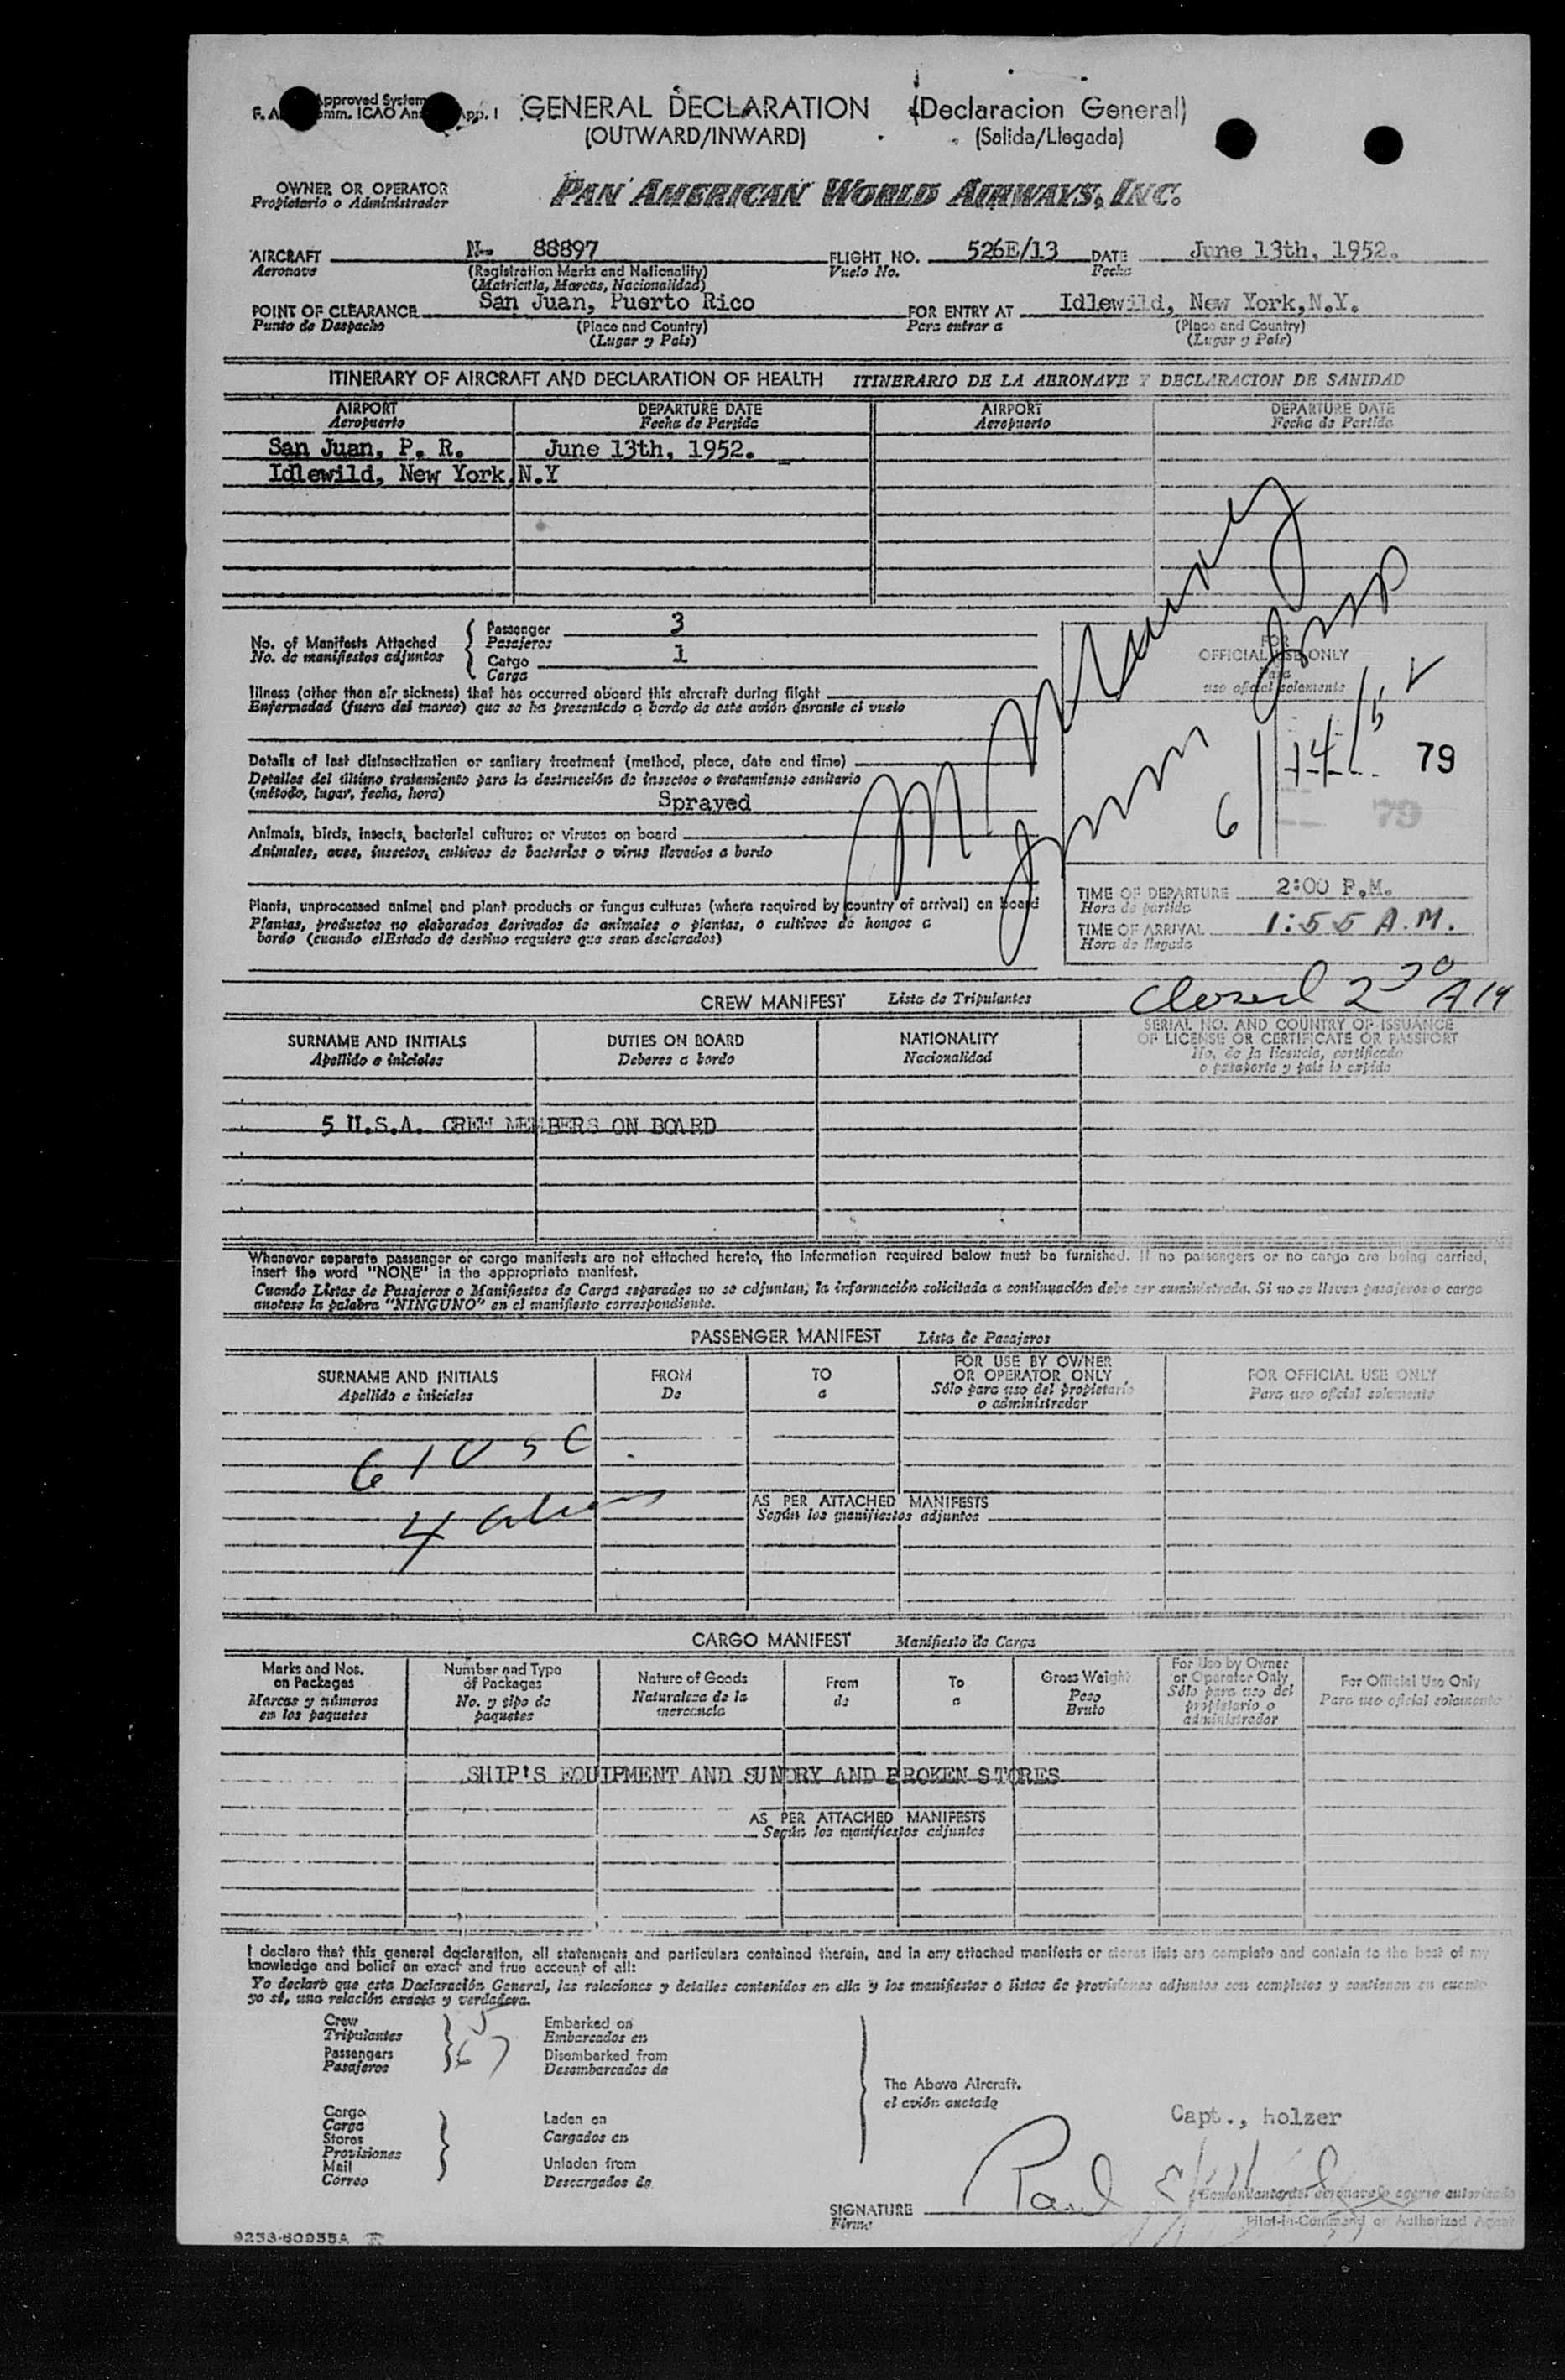 Approved System
GENERAL DECLARATION (Declaracion General)
(OUTWARD/INWARD) (Salida/Llegada)
OWNER OR OPERATOR
Propietario o Administrador
PAN AMERICAN WORLD AIRWAYS, INC.
AIRCRAFT N- 88897 FLIGHT NO. 526E/13 DATE June 13th, 1952.
Aeronave (Registration Marks and Nationality) Vuelo No. Fecha
(Matricula, Marcas, Nacionalidad)
POINT OF CLEARANCE San Juan, Puerto Rico FOR ENTRY AT Idlewild, New York,N.Y.
Punto de Despacho (Place and Country) Para entrar a (Place and Country)
(Lugar y País) (Lugar y País)
ITINERARY OF AIRCRAFT AND DECLARATION OF HEALTH ITINERARIO DE LA AERONAVE Y DECLARACION DE SANIDAD
AIRPORT DEPARTURE DATE AIRPORT DEPARTURE DATE
Aeropuerto Fecha de Partida Aeropuerto Fecha de Partida
San Juan, P. R. June 13th, 1952.
Idlewild, New York,N.Y
No. of Manifests Attached
No. de manifiestos adjuntos
Passenger 3
Pasajeros
Cargo 1
Carga
FOR
OFFICIAL USE ONLY
Para
uso oficial solamente
Illness (other than air sickness) that has occurred aboard this aircraft during flight
Enfermedad (fuera del mareo) que se ha presentado a bordo de este avión durante el vuelo
Details of last disinsectization or sanitary treatment (method, place, date and time)
Detalles del último tratamiento para la destrucción de insectos o tratamiento sanitario
(método, lugar, fecha, hora)
Sprayed
6/14/52
79
Animals, birds, insects, bacterial cultures or viruses on board
Animales, aves, insectos, cultivos de bacterias o virus llevados a bordo
Plants, unprocessed animal and plant products or fungus cultures (where required by country of arrival) on board
Plantas, productos no elaborados derivados de animales o plantas, o cultivos de hongos a
bordo (cuando elEstado de destino requiere que sean declarados)
TIME OF DEPARTURE 2:00 P.M.
Hora de partida
TIME OF ARRIVAL 1:55 A.M.
Hora de llegada
Closed 2 30 A 14
CREW MANIFEST Lista de Tripulantes
SURNAME AND INITIALS DUTIES ON BOARD NATIONALITY SERIAL NO. AND COUNTRY OF ISSUANCE
OF LICENSE OR CERTIFICATE OR PASSPORT
Apellido e iniciales Deberes a bordo Nacionalidad No. de la licencia, certificado
o pasaporte y país lo expide
5 U.S.A. CREW MEMBERS ON BOARD
Whenever separate passenger or cargo manifests are not attached hereto, the information required below must be furnished. If no passengers or no cargo are being carried,
insert the word "NONE" in the appropriate manifest.
Cuando Listas de Pasajeros o Manifiestos de Carga separados no se adjuntan, la información solicitada a continuación debe ser suministrada. Si no se llevan pasajeros o carga
anotese la palabra "NINGUNO" en el manifiesto correspondiente.
PASSENGER MANIFEST Lista de Pasajeros
SURNAME AND INITIALS FROM TO FOR USE BY OWNER
OR OPERATOR ONLY FOR OFFICIAL USE ONLY
Apellido e iniciales De a Sólo para uso del propietario
o administrador Para uso oficial solamente
61 USC
4 alien
AS PER ATTACHED MANIFESTS
Según los manifiestos adjuntos
CARGO MANIFEST Manifiesto de Carga
Marks and Nos.
on Packages
Marcas y números
en los paquetes
Number and Type
of Packages
No. y tipo de
paquetes
Nature of Goods
Naturaleza de la
mercancía
From
de
To
a
Gross Weight
Peso
Bruto
For Use by Owner
or Operator Only
Sólo para uso del
propietario o
administrador
For Official Use Only
Para uso oficial solamente
SHIP'S EQUIPMENT AND SUNDRY AND BROKEN STORES
AS PER ATTACHED MANIFESTS
Según los manifiestos adjuntos
I declare that this general declaration, all statements and particulars contained therein, and in any attached manifests or stores lists are complete and contain to the best of my
knowledge and belief an exact and true account of all:
Yo declaro que esta Declaración General, las relaciones y detalles contenidos en ella y los manifiestos o listas de provisiones adjuntos son completos y contienen en cuanto
yo sé, una relación exacta y verdadera.
Crew 5 Embarked on
Tripulantes Embarcados en
Passengers 67 Disembarked from
Pasajeros Desembarcados de
The Above Aircraft.
el avión anotado
Cargo
Carga
Stores
Provisiones
Mail
Correo
Laden on
Cargados en
Unladen from
Descargados de
Capt., Holzer
SIGNATURE Paul
Firma
Comandante del aeronave o agente autorizado
Pilot-in-Command or Authorized Agent
9253-60955A